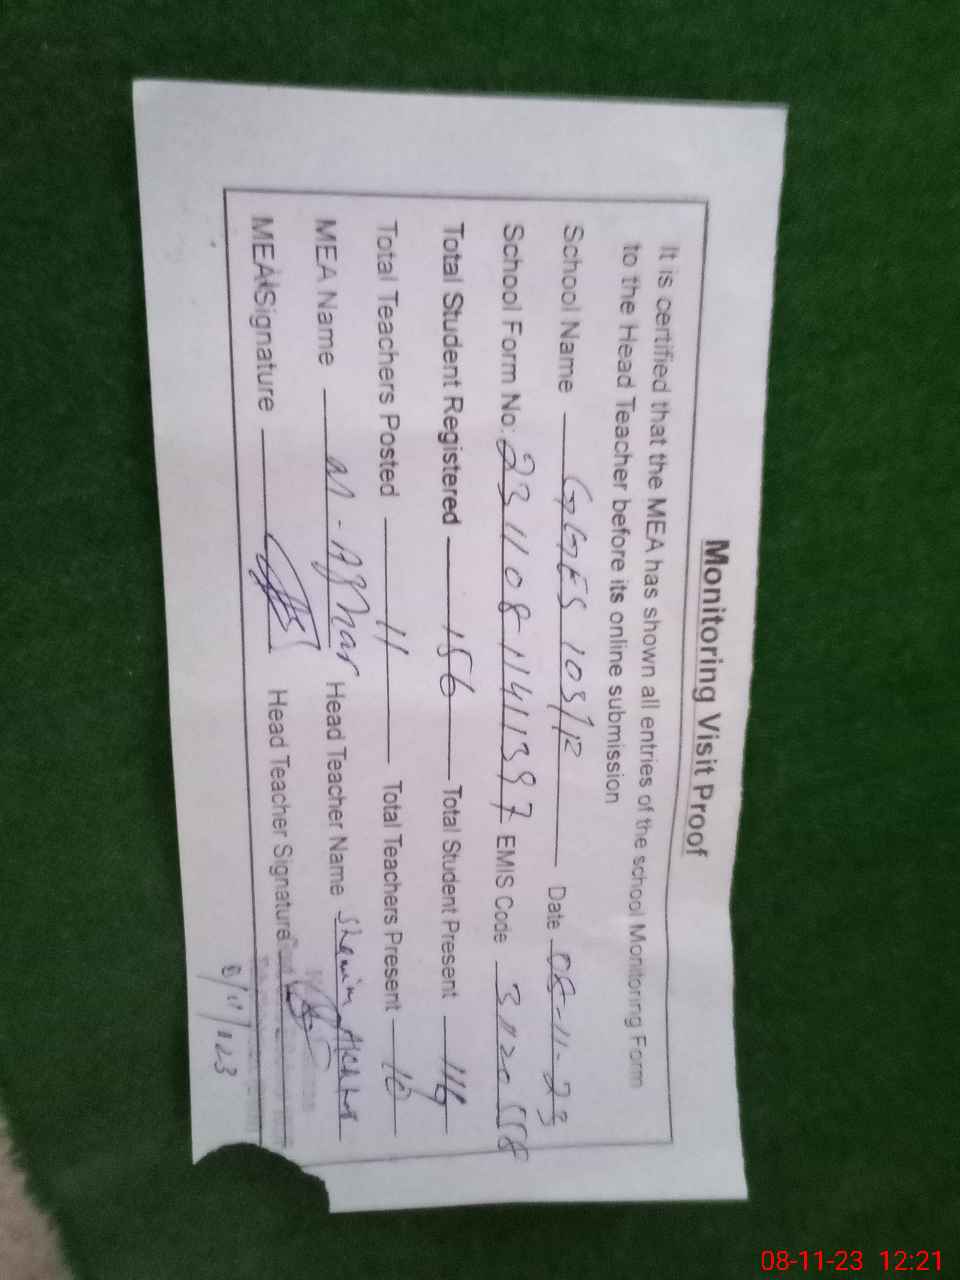 Monitoring Visit Proof
It is certified that the MEA has shown all entries of the school Monitoring Form
to the Head Teacher before its online submission
School Name GGES 103/P Date 08-11-23
School Form No: 231108-1141397 EMIS Code 31120558
Total Student Registered 156 Total Student Present 116
Total Teachers Posted 11 Total Teachers Present 10
MEA Name M-Azhar Head Teacher Name Shamim Akhtar
MEA Signature Head Teacher Signature
8/11/23
08-11-23 12:21